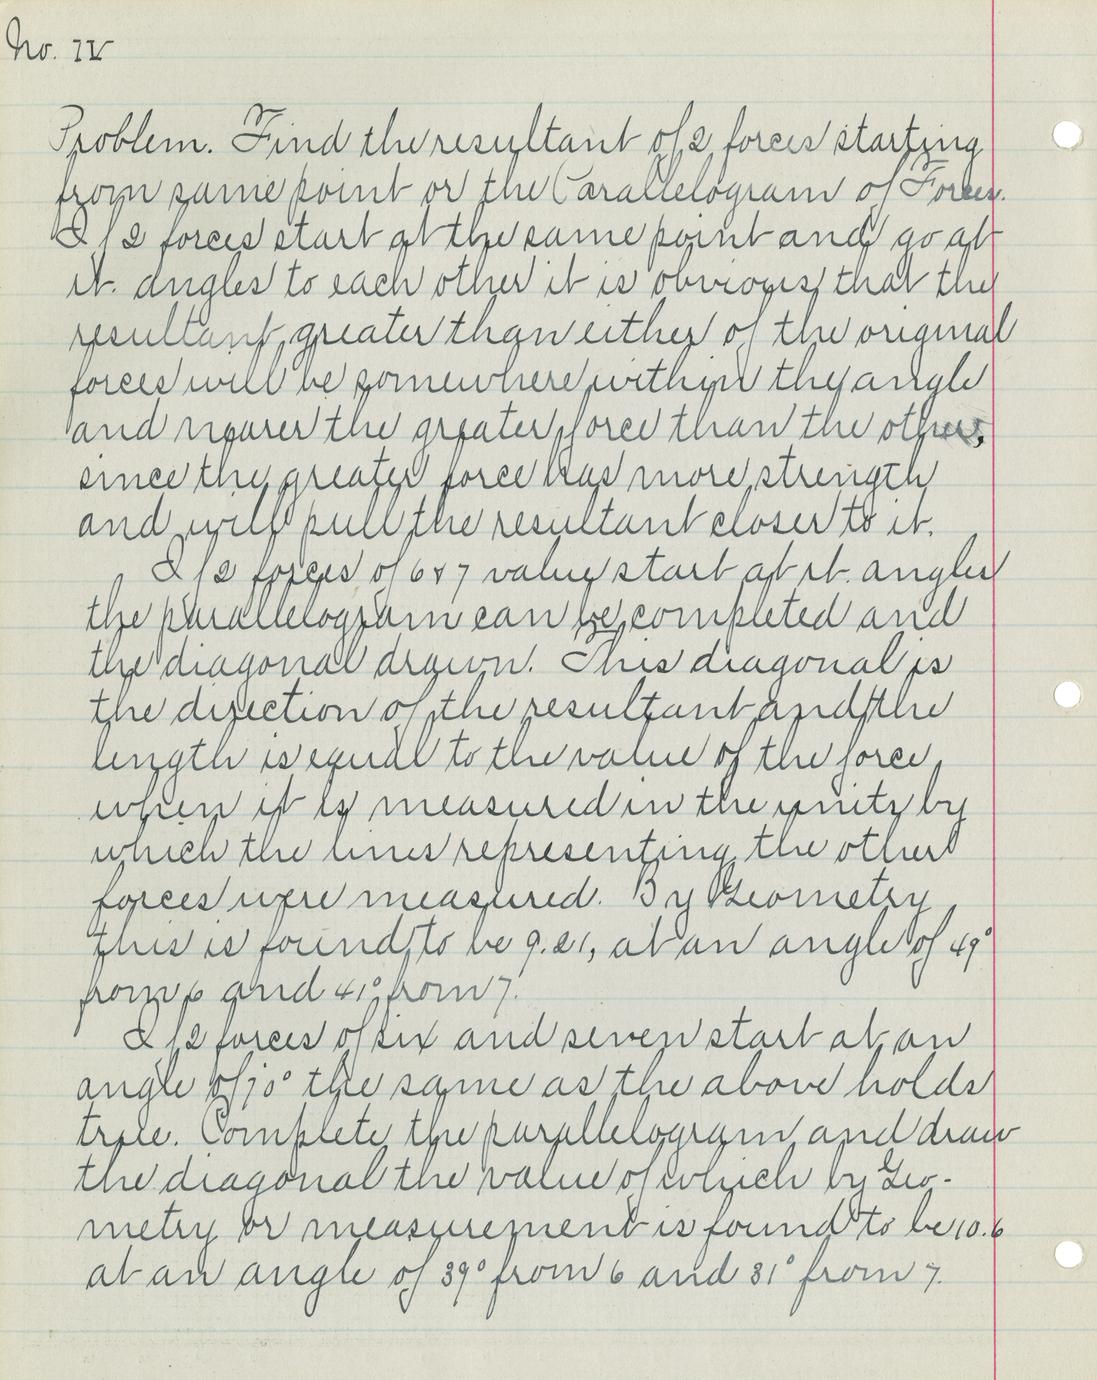 No. IV
Problem. Find the resultant of 2 forces starting
from same point or the Parallelogram of Forces.
If 2 forces start at the same point and go at
rt. angles to each other it is obvious that the
resultant, greater than either of the original
forces will be somewhere within the angle
and nearer the greater force than the other,
since the greater force has more strength
and will pull the resultant closer to it.
If 2 forces of 6 & 7 value start at rt. angles
the parallelogram can be completed and
the diagonal drawn. This diagonal is
the direction of the resultant and the
length is equal to the value of the force
when it is measured in the units by
which the lines representing the other
forces were measured. By Geometry
this is found to be 9.21, at an angle of 49°
from 6 and 41° from 7.
If 2 forces of six and seven start at an
angle of 70° the same as the above holds
true. Complete the parallelogram and draw
the diagonal the value of which by Geo-
metry or measurement is found to be 10.6
at an angle of 39° from 6 and 31° from 7.